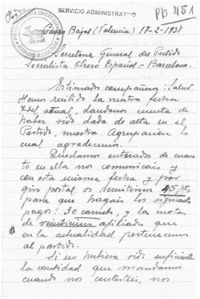 SERVICIO ADMINISTRATIVO
PB 451
Casas Bajas (Valencia) 17-2-1938
Secretario General del Partido
Socialista Obrero Español - Barcelona.
Estimado compañero: Salud.
Hemos recibido la nuestra fecha
del actual, dandonos cuenta de
haber sido dada de alta en el
Partido, nuestra Agrupación lo
cual agradecemos.
Quedamos enterados de cuanto
en ella nos comunicais, y
con esta misma fecha y por
giro postal os remitimos 45 pts
para que hagais los siguientes
pagos: 30 carnets, y las cuotas
de veintinueve afiliados que
en la actualidad pertenecemos
al partido.
Si no hubiera sido suficiente
la cantidad que mandamos
cuando nos contesteis, nos